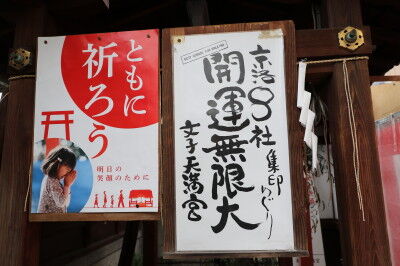 ともに
祈ろう
明日の
笑顔のために
京洛8社集印めぐり
開運無限大
文子天満宮